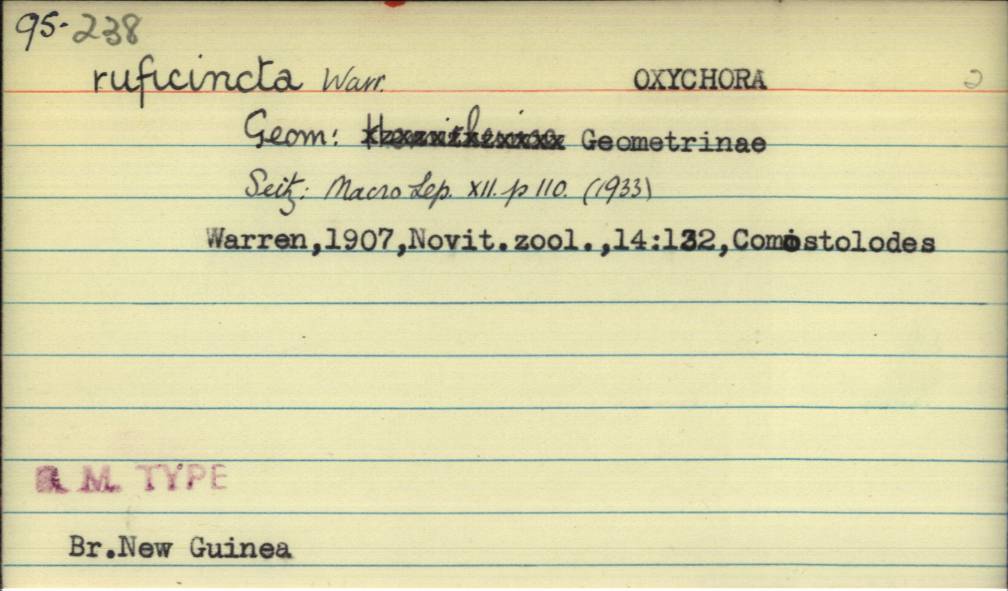 95-238
ruficincta Warr. OXYCHORA 2
Geom: Geometrinae
Seitz: Macro Lep. XII. p 110. (1933)
Warren,1907,Novit.zool.,14:132,Comostolodes
M. TYPE
Br.New Guinea